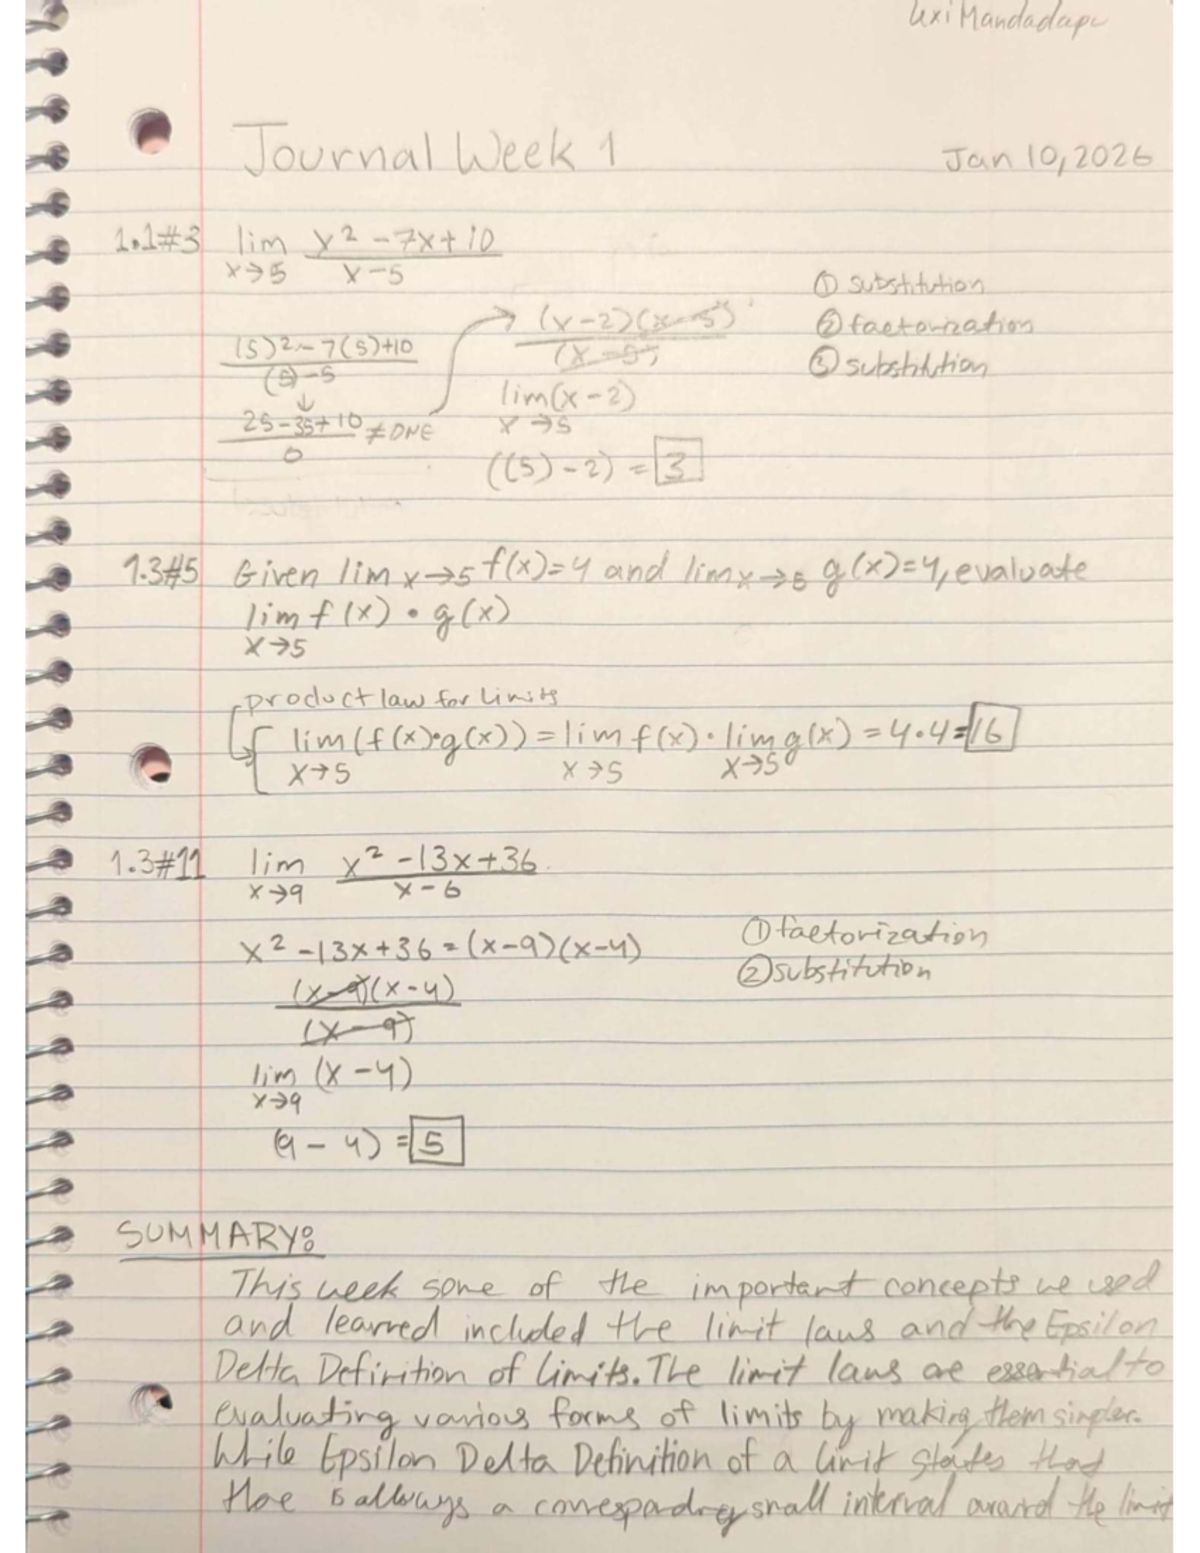 Lexi Mandadapu
Journal Week 1
Jan 10, 2026
1.1#3 lim x→5 x² - 7x + 10 / x - 5
① substitution
② factorization
③ substitution
(5)² - 7(5) + 10 / (5) - 5
↓
25 - 35 + 10 / 0 ≠ DNE
→ (x - 2)(x - 5) / (x - 5)
lim x→5 (x - 2)
((5) - 2) = 3
1.3#5 Given lim x→5 f(x) = 4 and lim x→5 g(x) = 4, evaluate
lim x→5 f(x) • g(x)
product law for limits
lim x→5 (f(x)•g(x)) = lim x→5 f(x) • lim x→5 g(x) = 4•4 = 16
1.3#11 lim x→9 x² - 13x + 36 / x - 6
x² - 13x + 36 = (x - 9)(x - 4)
① factorization
② substitution
(x - 9)(x - 4) / (x - 9)
lim x→9 (x - 4)
(9 - 4) = 5
SUMMARY:
This week some of the important concepts we used
and learned included the limit laws and the Epsilon
Delta Definition of limits. The limit laws are essential to
evaluating various forms of limits by making them simpler.
While Epsilon Delta Definition of a limit states that
there is allways a corresponding small interval around the limit